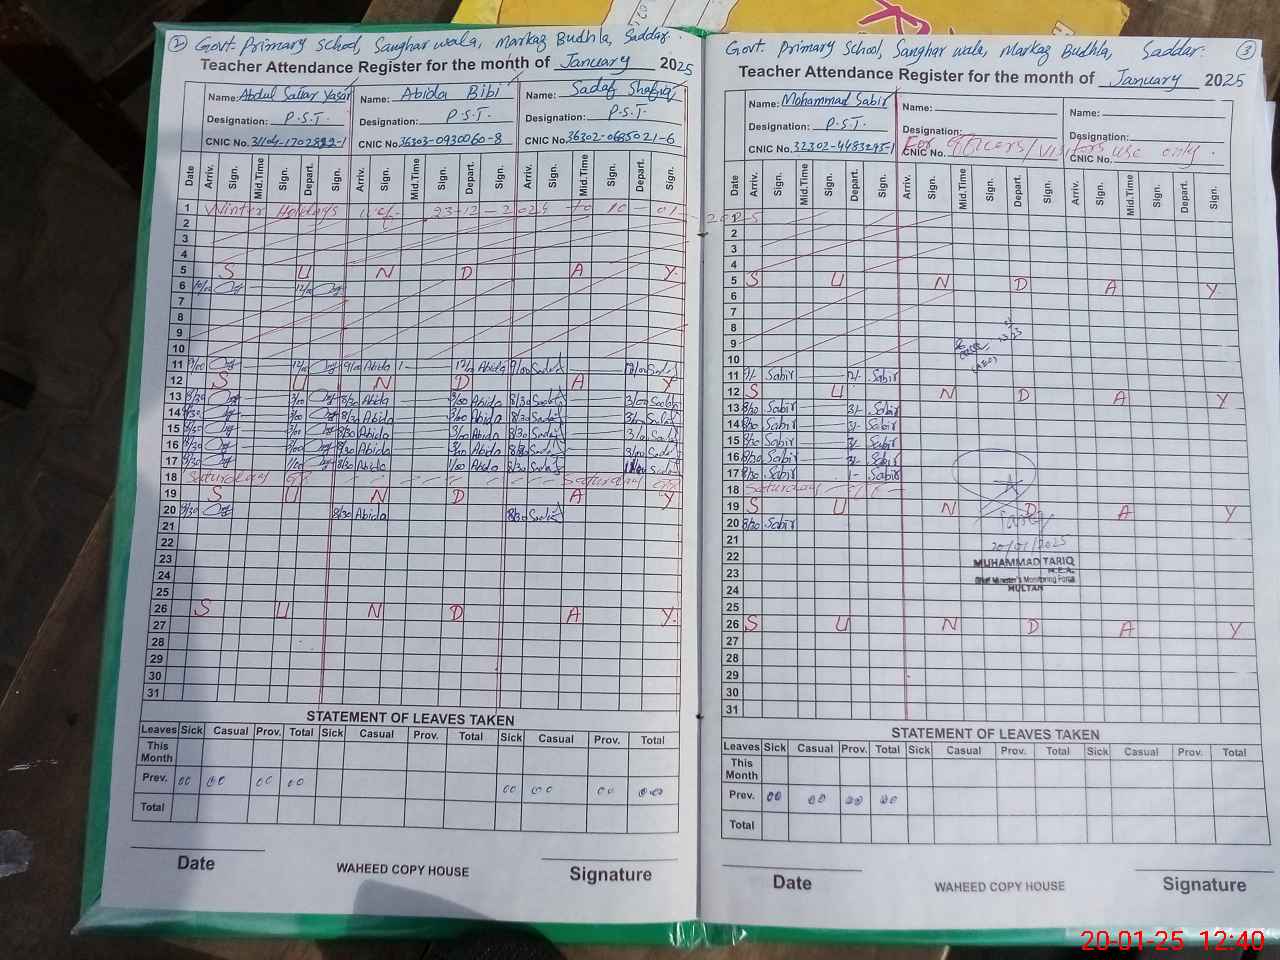 ② Govt. Primary School, Sanghar wala, Markaz Budhla, Saddar.
Teacher Attendance Register for the month of January 2025
Name: Abdul Sattar Yasar Name: Abida Bibi Name: Sadaf Shafiq
Designation: P.S.T. Designation: P.S.T. Designation: P.S.T.
CNIC No. CNIC No. 36303-0930060-8 CNIC No. 36302-0685021-6
Date Arriv. Sign. Mid.Time Sign. Depart. Sign. Arriv. Sign. Mid.Time Sign. Depart. Sign. Arriv. Sign. Mid.Time Sign. Depart. Sign.
1 Winter Holidays w.e.f. 23-12-2024 to 10-01-2025
2
3
4
5 S U N D A Y
6 10/00 12/00
7
8
9
10
11 9/00 12/00 9/00 Abida 12/00 Abida 9/00 Sadaf 12/00 Sadaf
12 S U N D A Y
13 8/30 3/00 8/30 Abida 3/00 Abida 8/30 Sadaf 3/00 Sadaf
14 8/30 3/00 8/30 Abida 3/00 Abida 8/30 Sadaf 3/00 Sadaf
15 8/30 3/00 8/30 Abida 3/00 Abida 8/30 Sadaf 3/00 Sadaf
16 8/30 3/00 8/30 Abida 3/00 Abida 8/30 Sadaf 3/00 Sadaf
17 8/30 1/00 8/30 Abida 1/00 Abida 8/30 Sadaf 1/00 Sadaf
18 Saturday off Saturday off
19 S U N D A Y
20 8/30 8/30 Abida 8/30 Sadaf
21
22
23
24
25
26 S U N D A Y
27
28
29
30
31
STATEMENT OF LEAVES TAKEN
Leaves Sick Casual Prov. Total Sick Casual Prov. Total Sick Casual Prov. Total
This Month
Prev. 00 00 00 00 00 00 00 00
Total
Date WAHEED COPY HOUSE Signature
Govt. Primary School, Sanghar wala, Markaz Budhla, Saddar. ③
Teacher Attendance Register for the month of January 2025
Name: Mohammad Sabir Name: Name:
Designation: P.S.T. Designation: Designation:
CNIC No. 32302-4483295-1 CNIC No. CNIC No.
For Officers/Visitors use only.
Date Arriv. Sign. Mid.Time Sign. Depart. Sign. Arriv. Sign. Mid.Time Sign. Depart. Sign. Arriv. Sign. Mid.Time Sign. Depart. Sign.
1
2
3
4
5 S U N D A Y
6
7
8
9
10
11 9/- Sabir 12/- Sabir
12 S U N D A Y
13 8/30 Sabir 3/- Sabir
14 8/30 Sabir 3/- Sabir
15 8/30 Sabir 3/- Sabir
16 8/30 Sabir 3/- Sabir
17 8/30 Sabir 1- Sabir
18 Saturday off
19 S U N D A Y
20 8/30 Sabir
21
22
23
24
25
26 S U N D A Y
27
28
29
30
31
Tariq
20/01/2025
MUHAMMAD TARIQ
M.E.A.
Chief Minister's Monitoring Force
MULTAN
STATEMENT OF LEAVES TAKEN
Leaves Sick Casual Prov. Total Sick Casual Prov. Total Sick Casual Prov. Total
This Month
Prev. 00 00 00 00
Total
Date WAHEED COPY HOUSE Signature
20-01-25 12:40